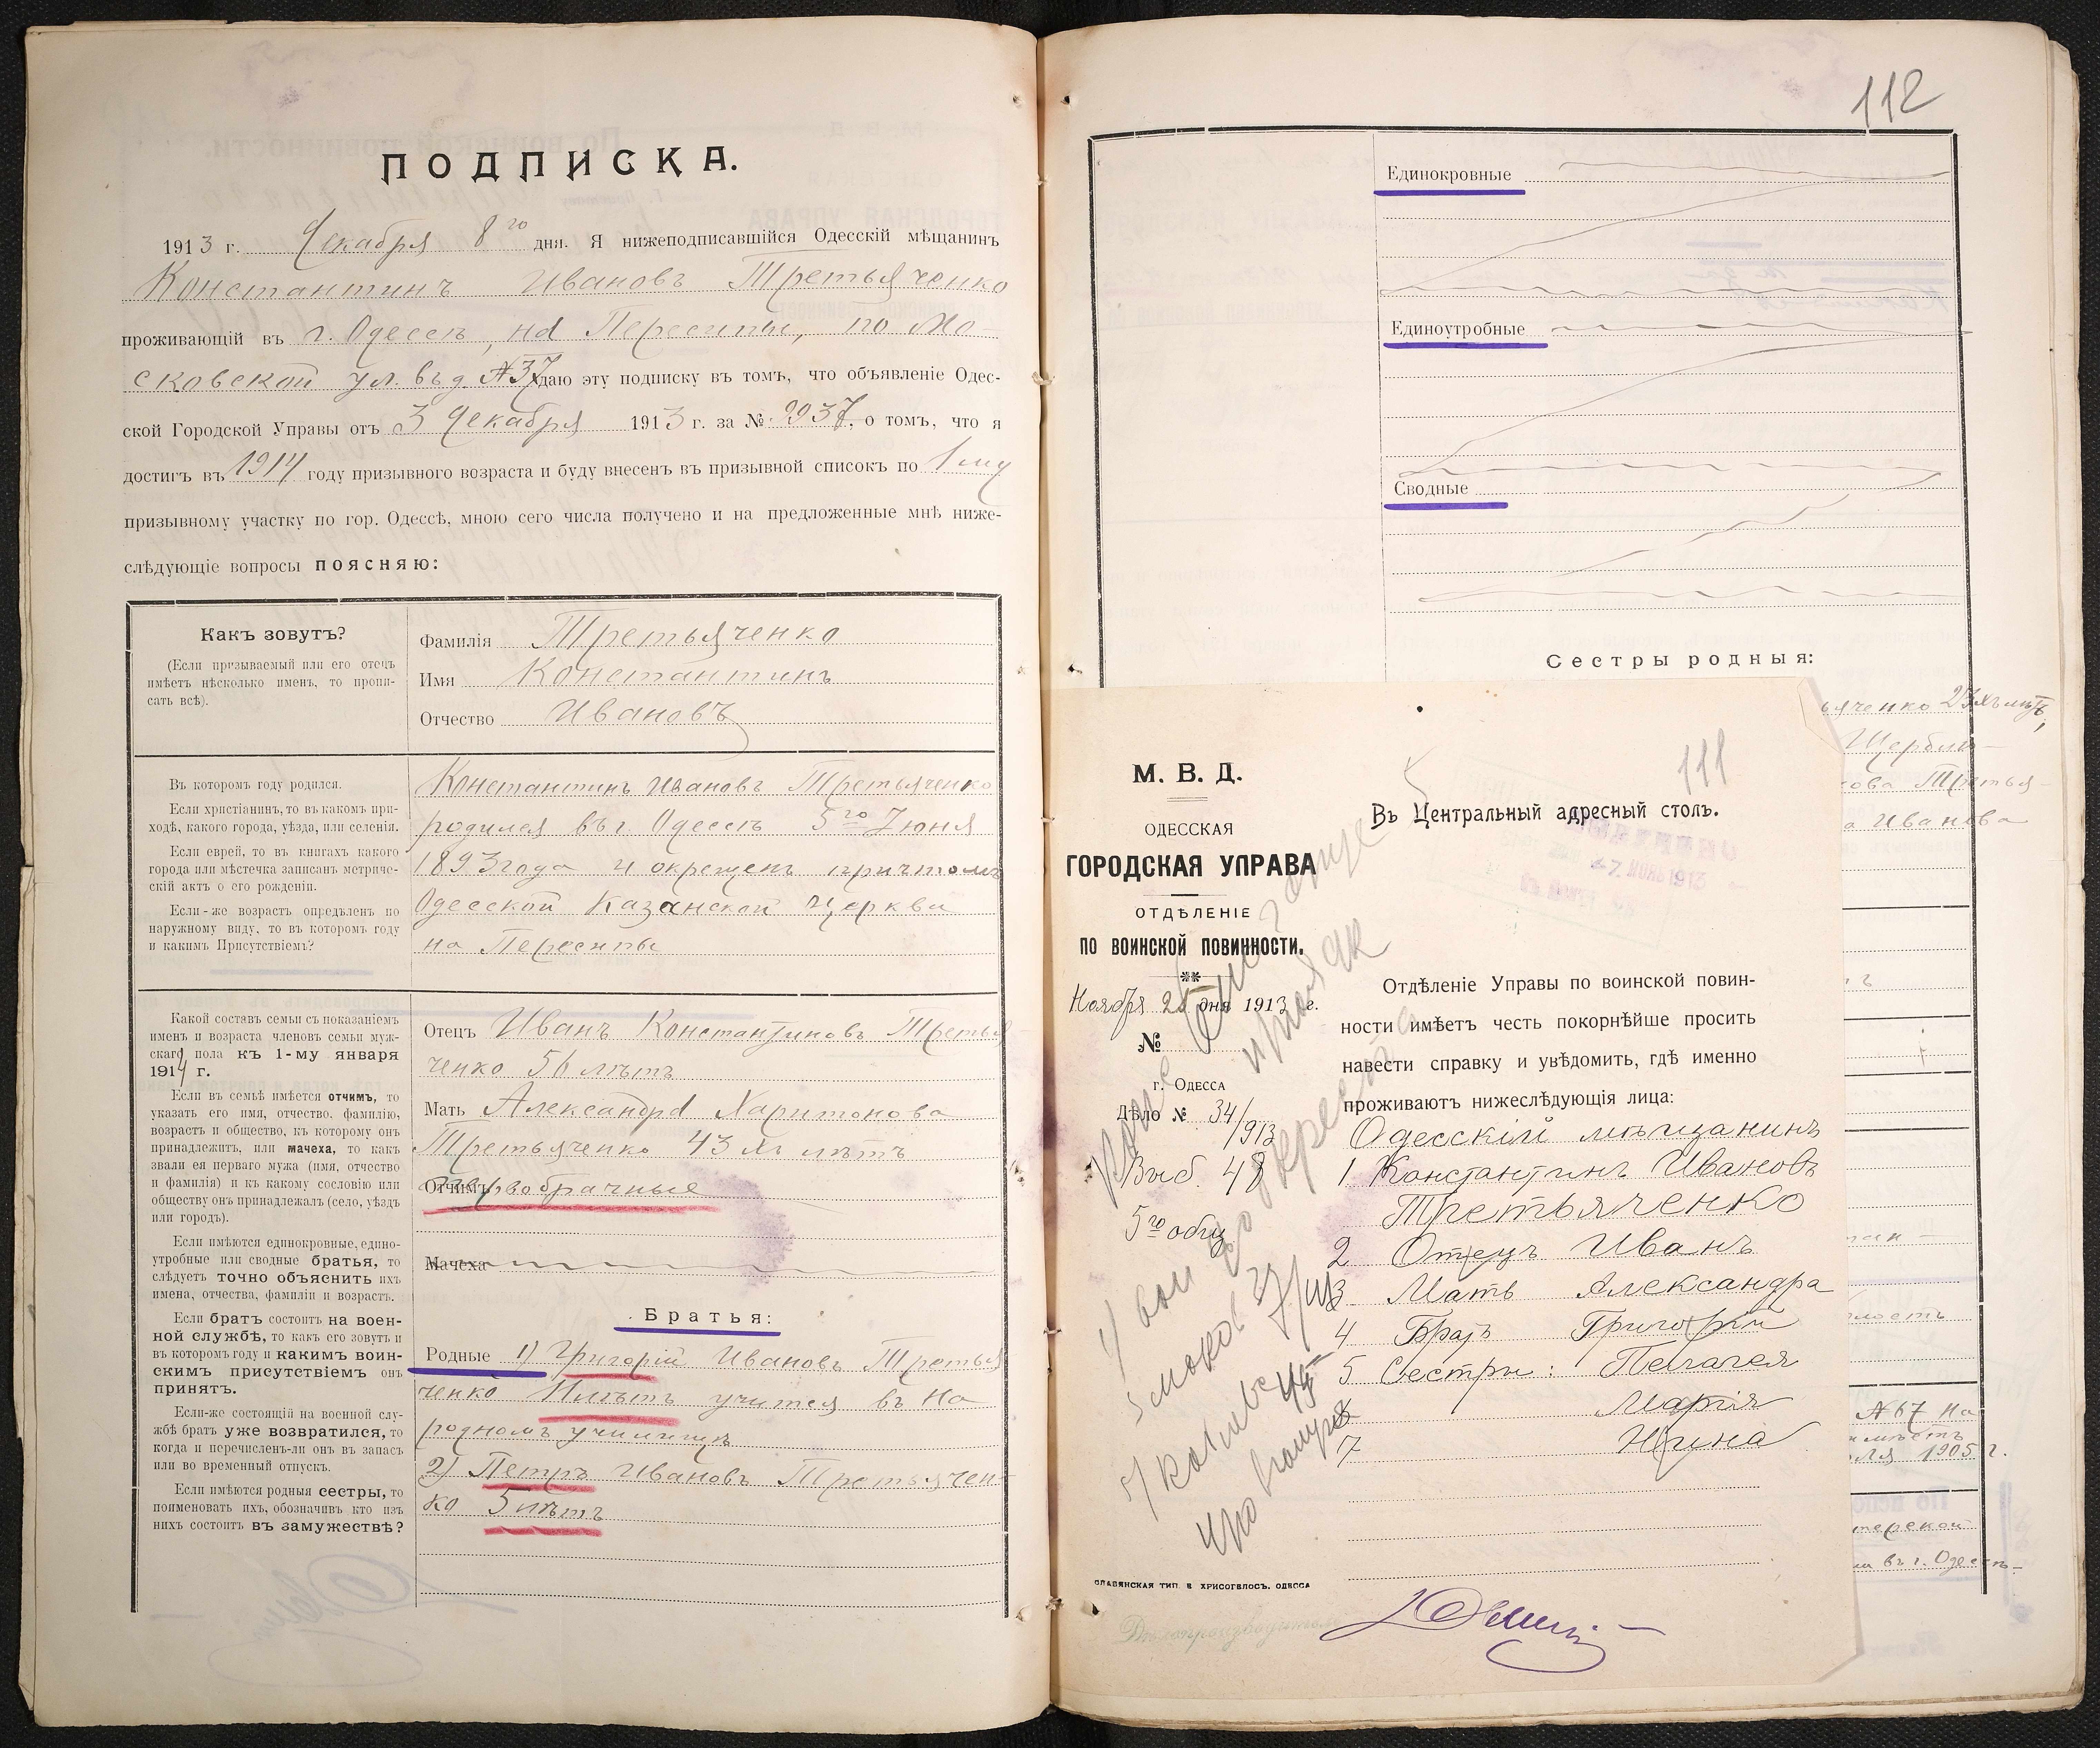 ПОДПИСКА.
1913 г. Декабря 8го дня. Я нижеподписавшійся Одесскій мѣщанинъ
Константинъ Ивановъ Третьяченко
проживающій въ г. Одессѣ, на Пересыпи, по Мо-
сковской ул. въ д. №37 даю эту подписку въ томъ, что объявленіе Одес-
ской Городской Управы отъ 3 Декабря 1913 г. за № 2937, о томъ, что я
достигъ въ 1914 году призывного возраста и буду внесенъ въ призывной списокъ по 1му
призывному участку по гор. Одессѣ, мною сего числа получено и на предложенные мнѣ ниже-
слѣдующіе вопросы поясняю:
Какъ зовутъ?
(Если призываемый или его отецъ
имѣетъ нѣсколько именъ, то пропи-
сать всѣ).
Фамилія Третьяченко
Имя Константинъ
Отчество Ивановъ
Въ котором году родился.
Если христіанинъ, то въ какомъ при-
ходѣ, какого города, уѣзда, или селенія.
Если еврей, то въ книгахъ какого
города или мѣстечка записанъ метриче-
скій актъ о его рожденіи.
Если-же возрастъ опредѣленъ по
наружному виду, то въ которомъ году
и какимъ Присутствіемъ?
Константинъ Ивановъ Третьяченко
родился въ г. Одессѣ 5го Іюня
1893 года и окрещенъ причтомъ
Одесской Казанской Церкви
на Пересыпи
Какой составъ семьи съ показаніемъ
именъ и возраста членовъ семьи муж-
скаго пола къ 1-му января
1914 г.
Если въ семьѣ имѣется отчимъ, то
указать его имя, отчество, фамилію,
возрастъ и общество, къ которому онъ
принадлежитъ, или мачеха, то какъ
звали ея перваго мужа (имя, отчество
и фамилія) и къ какому сословію или
обществу онъ принадлежалъ (село, уѣздъ
или городъ).
Если имѣются единокровные, едино-
утробные или сводные братья, то
слѣдуетъ точно объяснить ихъ
имена, отчества, фамиліи и возрастъ.
Если братъ состоитъ на воен-
ной службѣ, то какъ его зовутъ и
въ которомъ году и какимъ воин-
скимъ присутствіемъ онъ
принятъ.
Если-же состоящій на военной слу-
жбѣ братъ уже возвратился, то
когда и перечисленъ-ли онъ въ запасъ
или во временный отпускъ.
Если имѣются родныя сестры, то
поименовать ихъ, обозначивъ кто изъ
нихъ состоитъ въ замужествѣ?
Отецъ Иванъ Константиновъ Третья
ченко 56 лѣтъ
Мать Александра Харитонова
Третьяченко 43 хъ лѣтъ
Отчимъ первобрачные
Мачеха
Братья:
Родные 1) Григорій Ивановъ Третья
ченко 11 лѣтъ учится въ на
родномъ училищѣ
2) Петръ Ивановъ Третьячен-
ко 5 лѣтъ
112
Единокровные
Единоутробные
Сводные
Сестры родныя:
ьяченко 23хъ лѣтъ,
Щербин-
кова Третья-
а Иванова
№67 На
1905 г.
терской
въ г. Одессѣ-
111
М. В. Д.
ОДЕССКАЯ
ГОРОДСКАЯ УПРАВА
ОТДѢЛЕНІЕ
ПО ВОИНСКОЙ ПОВИННОСТИ.
Ноября 25 дня 1913 г.
№
г. Одесса
Дѣло № 34/913
Выб. 48
5го общ
Въ Центральный адресный столъ.
27 НОЯБ 1913
Отдѣленіе Управы по воинской повин-
ности имѣетъ честь покорнѣйше просить
навести справку и увѣдомить, гдѣ именно
проживаютъ нижеслѣдующія лица:
Одесскій мѣщанинъ
1 Константинъ Ивановъ
Третьяченко
2 Отецъ Иванъ
3 Мать Александра
4 Братъ Григорій
5 Сестры: Пелагея
6 Марія
7 Нина
СЛАВЯНСКАЯ ТИП. Е ХРИСОГЕЛОСЪ, ОДЕССА
Дѣлопроизводитель